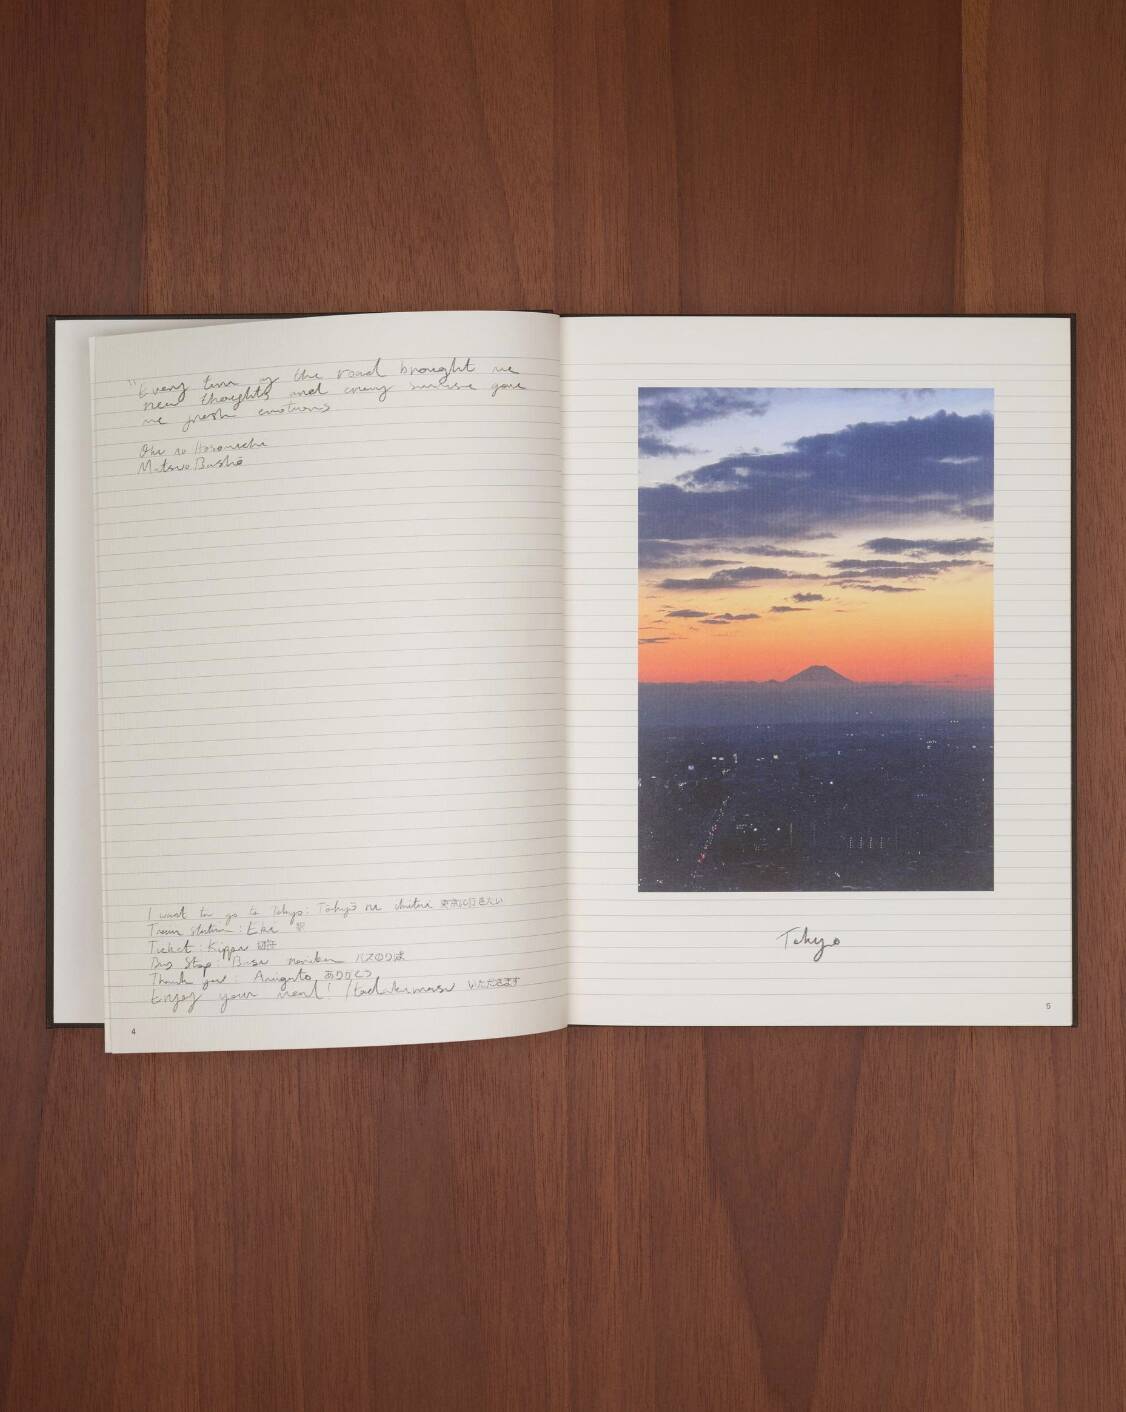 "Every turn of the road brought me
new thoughts and every sunrise gave
me fresh emotions
Oku no Hosomichi
Matsuo Bashō
I want to go to Tokyo: Tōkyō ni ikitai 東京に行きたい
Train station: Eki 駅
Ticket: Kippu 切符
Bus Stop: Basu noriba バスのりば
Thank you: Arigato ありがとう
Enjoy your meal! Itadakimasu いただきます
4
Tokyo
5